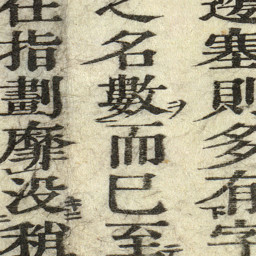 邊塞則多有字
之名數而已至
在指劃靡没稍